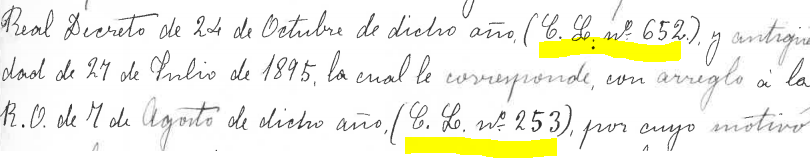 Real Decreto de 24 de Octubre de dicho año, (C. L. nº 652.), y antigüe
dad de 27 de Julio de 1895, la cual le corresponde, con arreglo á la
R. O. de 7 de Agosto de dicho año, (C. L. nº 253), por cuyo motivó